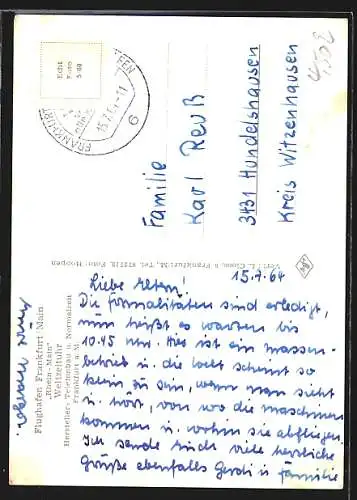 Echt
Foto
FRANKFURT
15.7.64-11
6
Familie
Karl Reuß
3431 Hundelshausen
Kreis Witzenhausen
Flughafen Frankfurt Main
„Rhein-Main"
Weltzeituhr
Hersteller: Telefonbau u. Normalzeit
Frankfurt a. M.
15.7.64
Liebe Eltern!
Die Formalitäten sind erledigt,
nun heißt es warten bis
10.45 Uhr. Hier ist ein massen-
betrieb u. die Welt scheint so
klein zu sein, wenn man sieht
u. hört, von wo die maschinen
kommen u. wohin sie abfliegen.
Ich sende Euch viele herzliche
Grüße ebenfalls Gerdi u. Familie